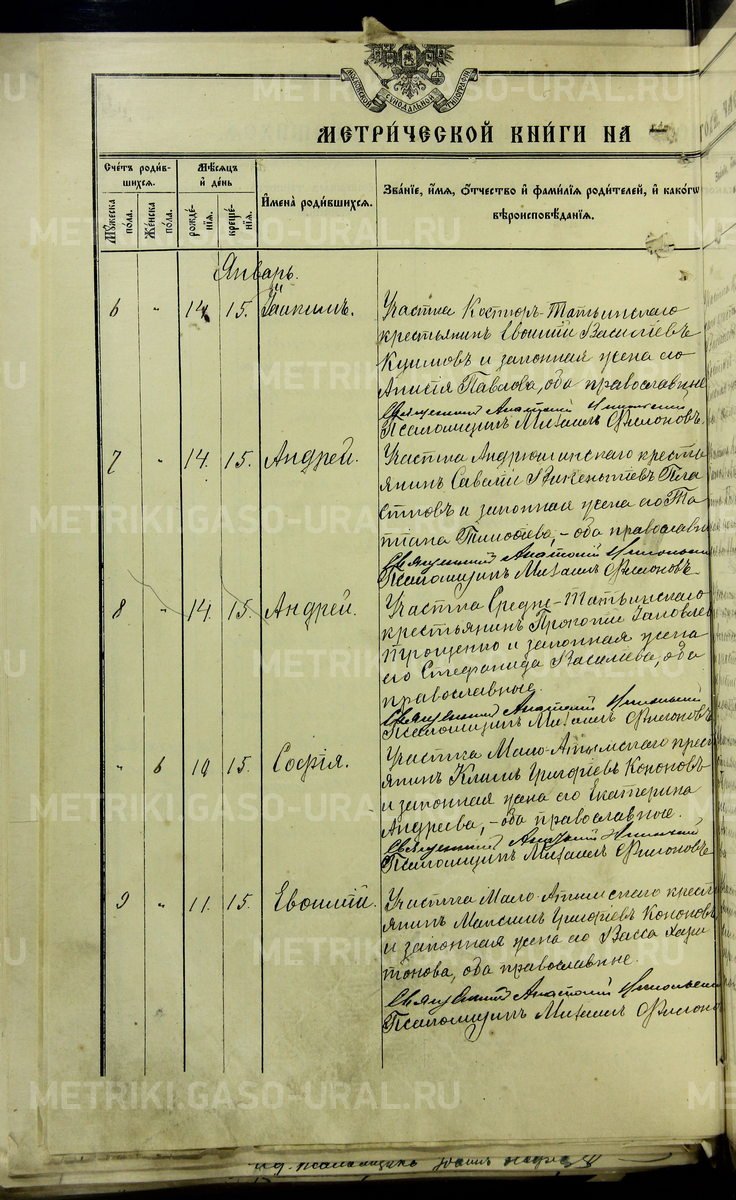 МОСКОВСКОЙ СѴНОДАЛЬНОЙ ТИПОГРАФІИ
МЕТРИ́ЧЕСКОЙ КНИ́ГИ НА
Сче́тъ роди́в-
шихся.
Му́жеска по́ла.
Же́нска по́ла.
Мѣ́сяцъ
и҆ де́нь
рожде́-
нія.
креще́-
нія.
И҆мена̀ роди́вшихся.
Зва́ніе, и҆́мя, ѻ҆́тчество и҆ фами́лія роди́телей, и҆ како́гѡ
вѣроисповѣ́данія.
Январь.
6 „ 14 15. Іоакимъ.
Участка Татьинскаго
крестьянинъ Евѳимій Васильевъ
и законная жена его
Анисія Павлова, оба православные
Священникъ Анатолій
Псаломщикъ Михаилъ Филоновъ.
7 „ 14. 15. Андрей.
Участка Андрюшинскаго кресть
янинъ Савелій Викентіевъ
и законная жена его Та
тіана Тимоѳеева, - оба православные
Священникъ Анатолій
Псаломщикъ Михаилъ Филоновъ
8 „ 14. 15. Андрей.
Участка Средне-Татьинскаго
крестьянинъ Прокопій Яковлевъ
Трощенко и законная жена
его Стефанида Васильева, оба
православные.
Священникъ Анатолій
Псаломщикъ Михаилъ Филоновъ
„ 6 14 15. Софія.
Участка Мало-Атымскаго крест
янинъ Климъ Григорьевъ Кононовъ
и законная жена его Екатерина
Андреева, - оба православные.
Священникъ Анатолій
Псаломщикъ Михаилъ Филоновъ
9 „ 11. 15. Евѳимій.
Участка Мало Атымскаго крест
янинъ Максимъ Григорьевъ Кононовъ
и законная жена его Васса Хари
тонова, оба православные.
Священникъ Анатолій
Псаломщикъ Михаилъ Филоновъ
METRIKI.GASO-URAL.RU